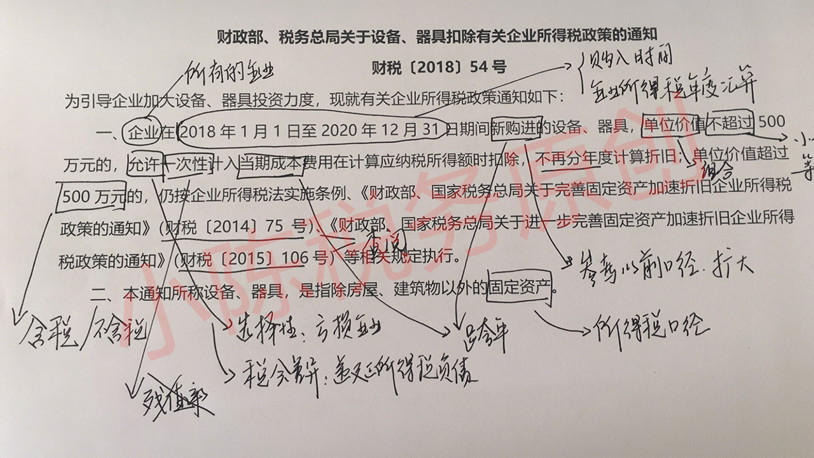 财政部、税务总局关于设备、器具扣除有关企业所得税政策的通知
财税〔2018〕54 号
所有的企业
购入时间
企业所得税年度汇算
为引导企业加大设备、器具投资力度，现就有关企业所得税政策通知如下：
一、企业在 2018 年 1 月 1 日至 2020 年 12 月 31 日期间新购进的设备、器具，单位价值不超过 500
万元的，允许一次性计入当期成本费用在计算应纳税所得额时扣除，不再分年度计算折旧；单位价值超过
小
等
组合
500 万元的，仍按企业所得税法实施条例、《财政部、国家税务总局关于完善固定资产加速折旧企业所得税
政策的通知》（财税〔2014〕75 号）、《财政部、国家税务总局关于进一步完善固定资产加速折旧企业所得
税政策的通知》（财税〔2015〕106 号）等相关规定执行。
参考以前口径.扩大
二、本通知所称设备、器具，是指除房屋、建筑物以外的固定资产。
含税/不含税
选择性：亏损企业
跨年
所得税口径
税会差异：递延所得税负债
残值率
小陈税务原创